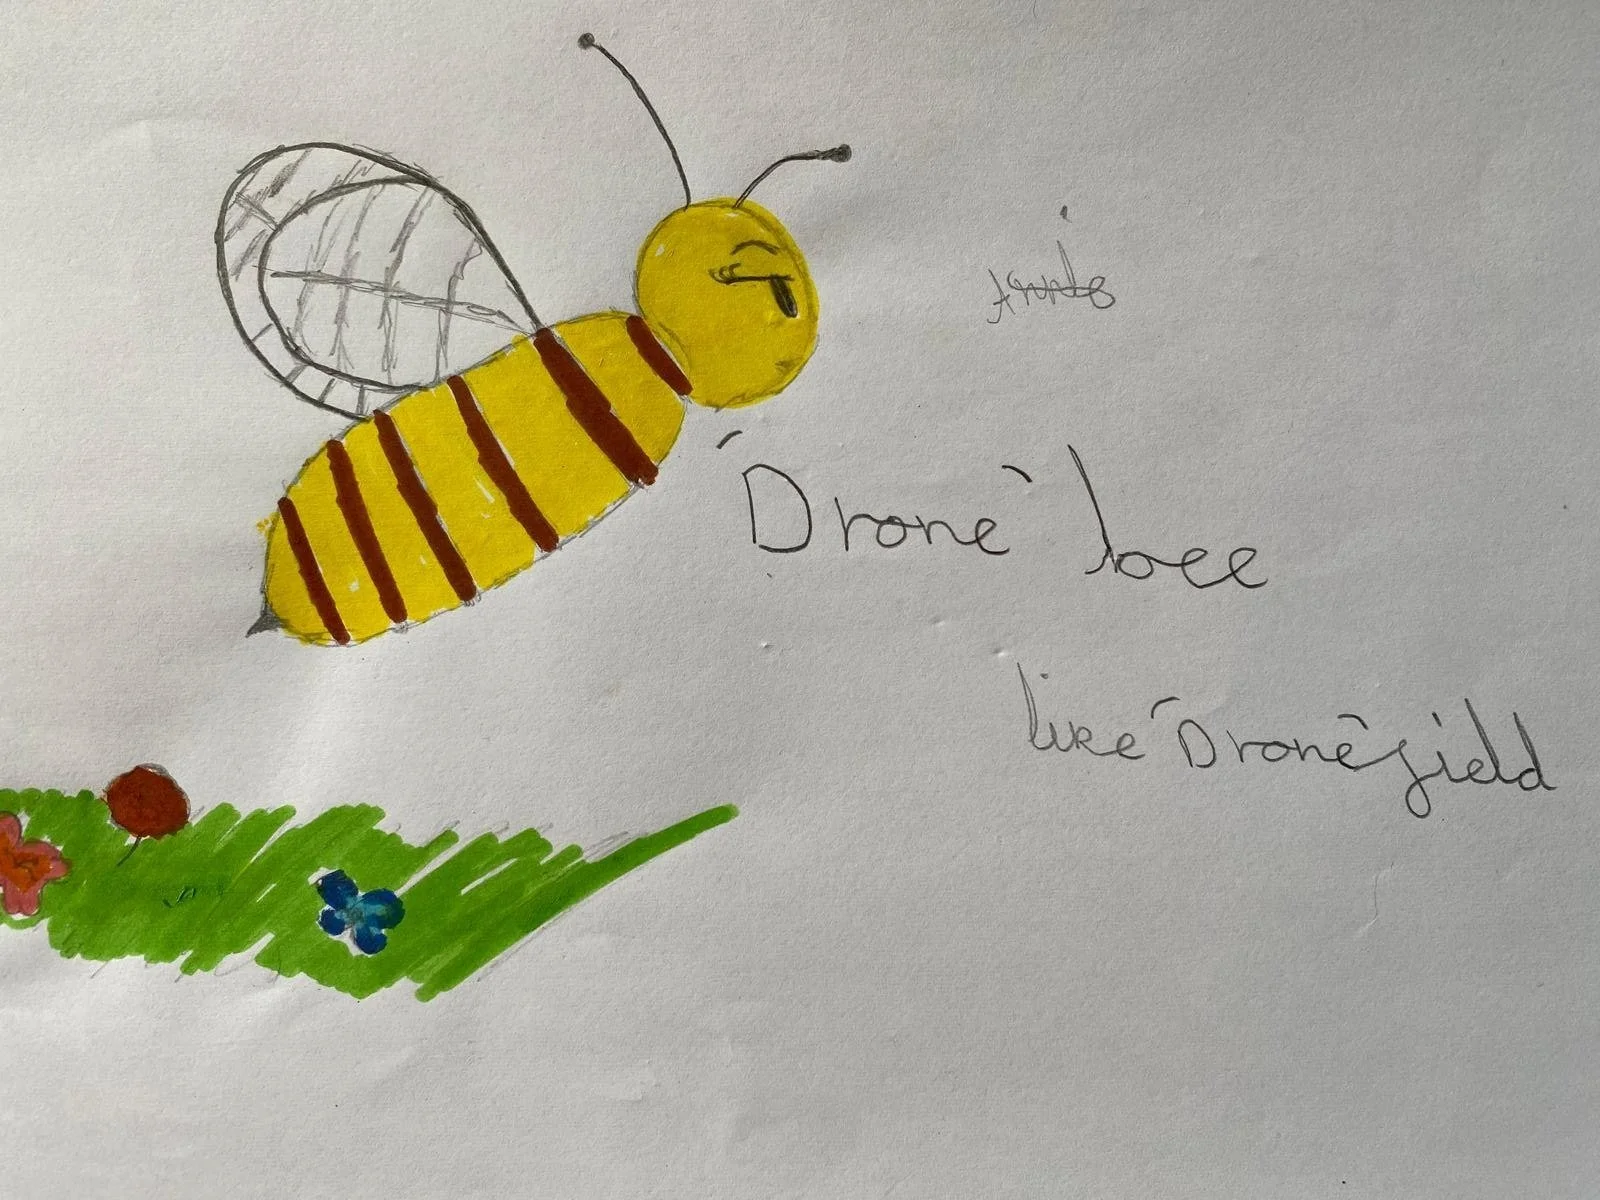 "Drone" bee
like "Drone"field